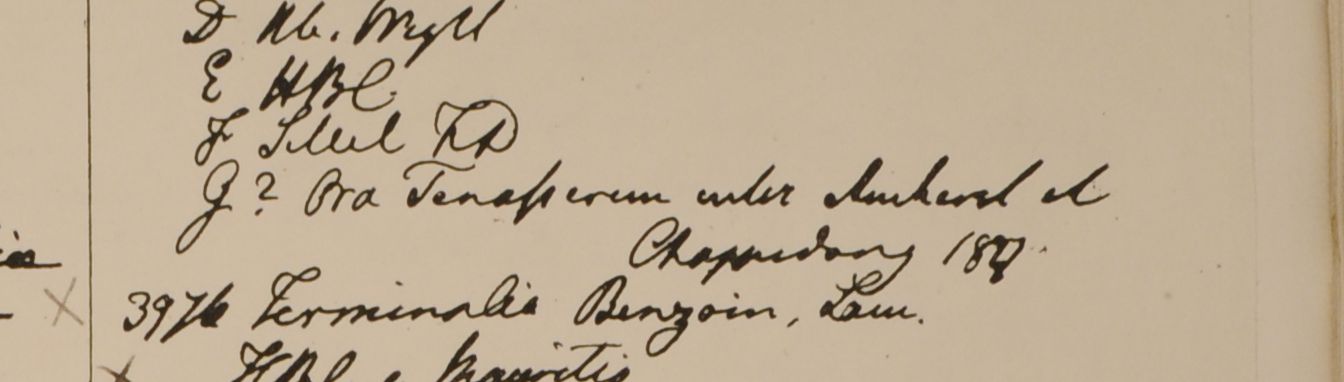 D Hb. Wight
E HBC.
F Sillet FD
G? Ora Tenasserim inter Amherst et
Chappedong 1827.
3976 Terminalia Benzoin, Lam.
HBC e Mauritio